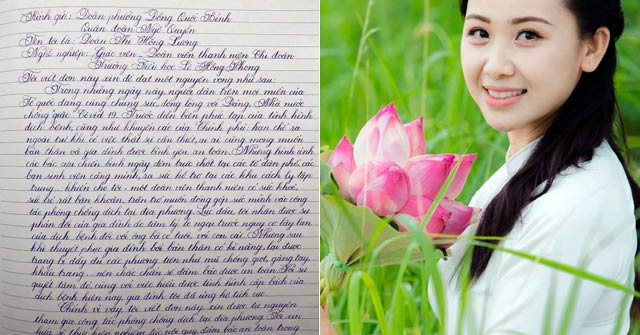 Kính gửi: Đoàn phường Đông Quốc Bình
Quận đoàn Ngô Quyền
Tên tôi là: Đoàn Thị Hồng Lương
Nghề nghiệp: Giáo viên - Đoàn viên thanh niên Chi đoàn
Trường Tiểu học Lê Hồng Phong
Tôi viết đơn này xin đề đạt một nguyện vọng như sau:
Trong những ngày này, người dân trên mọi miền của
Tổ quốc đang cùng chung sức, đồng lòng với Đảng, Nhà nước
chống "giặc" Covid 19. Trước diễn biến phức tạp của tình hình
dịch bệnh, cũng như khuyến cáo của Chính phủ: hạn chế ra
ngoài trừ khi có việc thật sự cần thiết, ai ai cũng mong muốn
bản thân và gia đình được bình yên, an toàn. Những hình ảnh
các bác cựu chiến binh ngày đêm trực chốt tại các tổ dân phố, các
bạn sinh viên cùng mình, ra sức hỗ trợ tại các khu cách ly tập
trung... khiến cho tôi - một đoàn viên thanh niên có sức khoẻ,
sức trẻ rất băn khoăn, trăn trở muốn đóng góp sức mình vào công
tác phòng chống dịch tại địa phương. Lúc đầu tôi nhận được sự
phản đối của gia đình do tâm lý lo ngại trước nguy cơ lây lan
của dịch bệnh đối với ông bà có tuổi, với con cái. Nhưng sau
khi thuyết phục gia đình bởi bản thân có kĩ năng, lại được
trang bị đầy đủ các phương tiện như mũ chống giọt, găng tay,
khẩu trang... nên chắc chắn sẽ đảm bảo được an toàn. Với sự
quyết tâm đó, cùng với việc hiểu được tình hình cấp bách của
dịch bệnh hiện nay, gia đình tôi đã ủng hộ tích cực.
Chính vì vậy, tôi viết đơn này, xin được tự nguyện
tham gia công tác phòng chống dịch tại địa phương. Tôi xin
hứa sẽ thực hiện nghiêm túc nội quy đảm bảo an toàn trong